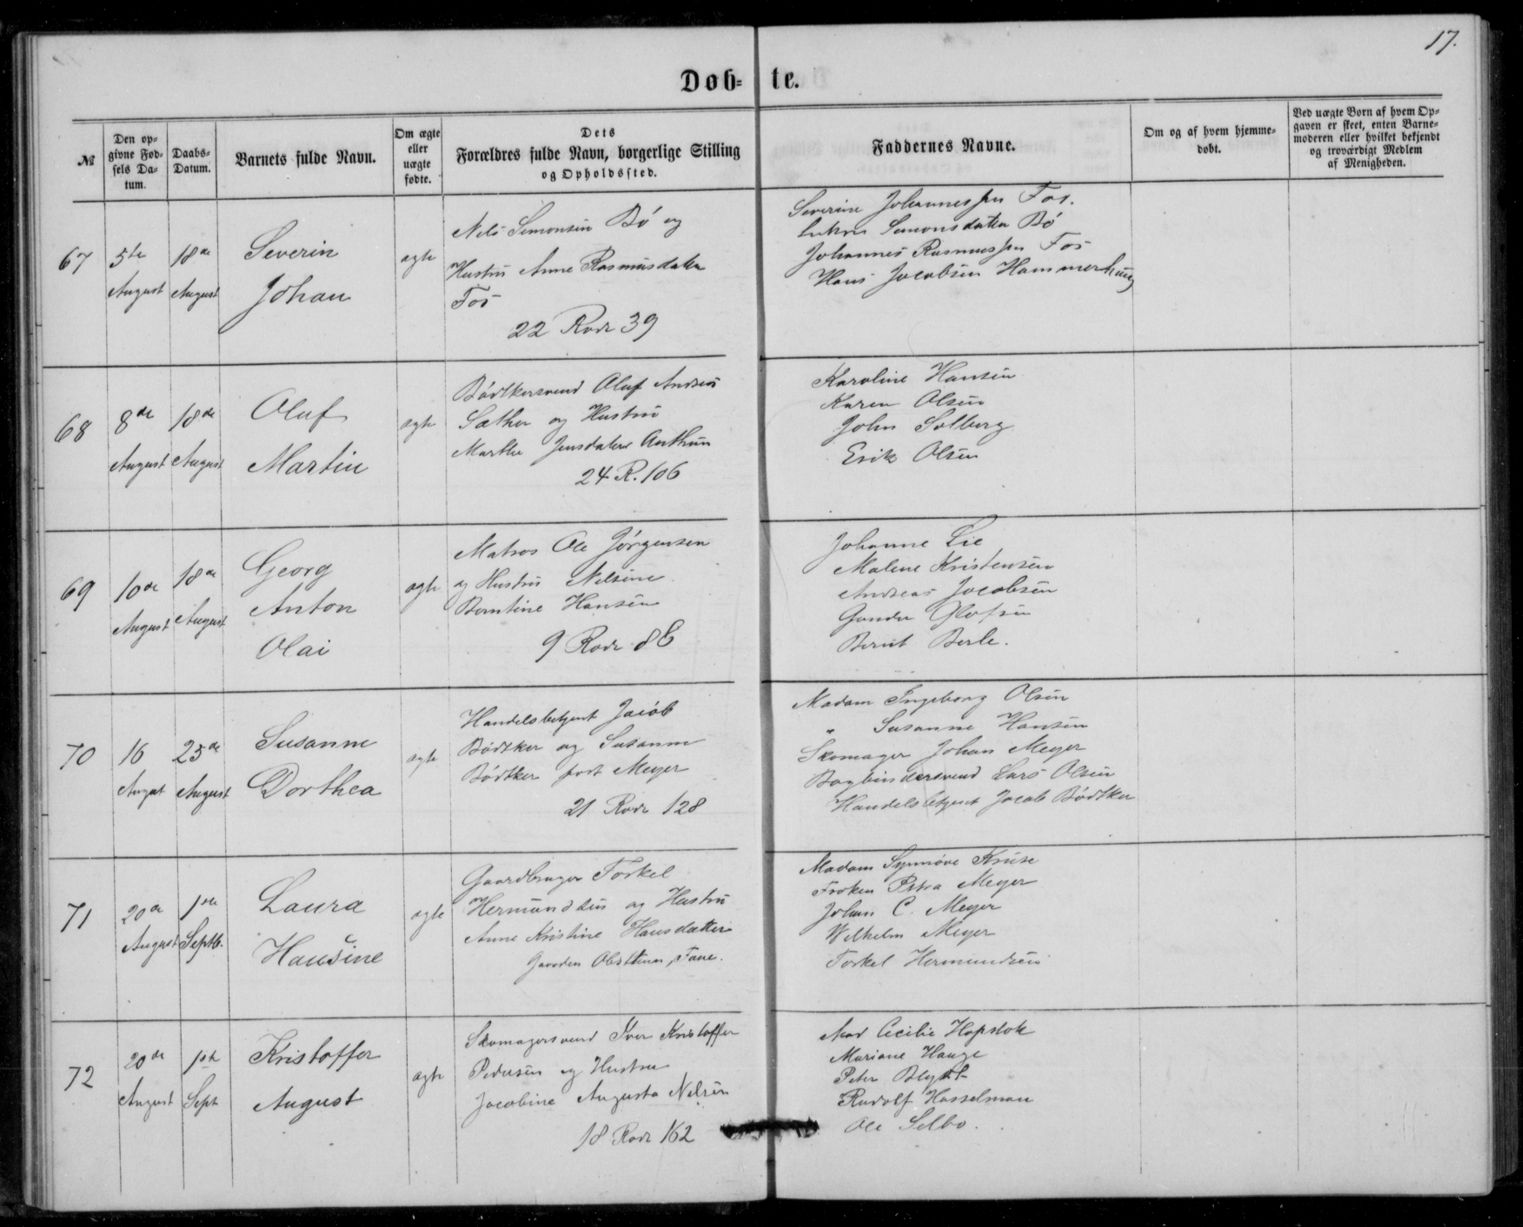 17.
Døb- te.
№
Den op-
givne Fød-
sels Da-
tum.
Daabs-
Datum.
Barnets fulde Navn.
Om ægte
eller
uægte
fødte.
Dets
Forældres fulde Navn, borgerlige Stilling
og Opholdssted.
Faddernes Navne.
Om og af hvem hjemme-
døbt.
Ved uægte Børn af hvem Op-
gaven er skeet, enten Barne-
moderen eller hvilket bekjendt
og troværdigt Medlem
af Menigheden.
67
5te
August
18de
August
Severin
Johan
ægte
Nils Simonsen Bö og
Hustru Anne Rasmusdatter
Fos
22 Rode 39
Severine Johannessen Fos.
Simonsdatter Bö
Johannes Rasmussen Fos
Hans Jacobsen Hammerhaug
68
8de
August
18de
August
Oluf
Martin
ægte
Bödtkersvend Oluf Andreas
Sæther og Hustru
Marthe Jensdatter Anthun
24 R. 106
Karoline Hansen
Karen Olsen
John Solberg
Erik Olsen
69
10de
August
18de
August
Georg
Anton
Olai
ægte
Matros Ole Jörgensen
og Hustru Nilsine
Berntine Hansen
9 Rode 86
Johanne Lie
Malene Kristensen
Andreas Jacobsen
Gunder Olofsen
Berent Berle.
70
16
August
25de
August
Susanne
Dorthea
ægte
Handelsbetjent Jacob
Bödtker og Susanne
Bödtker født Meyer
21 Rode 128
Madam Ingeborg Olsen
" Susanne Hansen
Skomager Johan Meyer
Bogbindersvend Lars Olsen
Handelsbetjent Jacob Bödtker
71
20de
August
1ste
Septb.
Laura
Hansine
ægte
Gaardbruger Torkel
Hermundsen og Hustru
Anne Kristine Hansdatter
Gaarden Fane.
Madam Synnöve Kruse
Frøken Petra Meyer
Johan C. Meyer
Wilhelm Meyer
Torkel Hermundsen
72
20de
August
1ste
Sept
Kristoffer
August
ægte
Skomagersvend Iver Kristoffer
Pedersen og Hustru
Jacobine Augusta Nilsen
18 Rode 162
Mad Cecilie Hopstok
Mariane Hauge
Peter Blydt
Rudolf Hasselman
Ole Selbo.